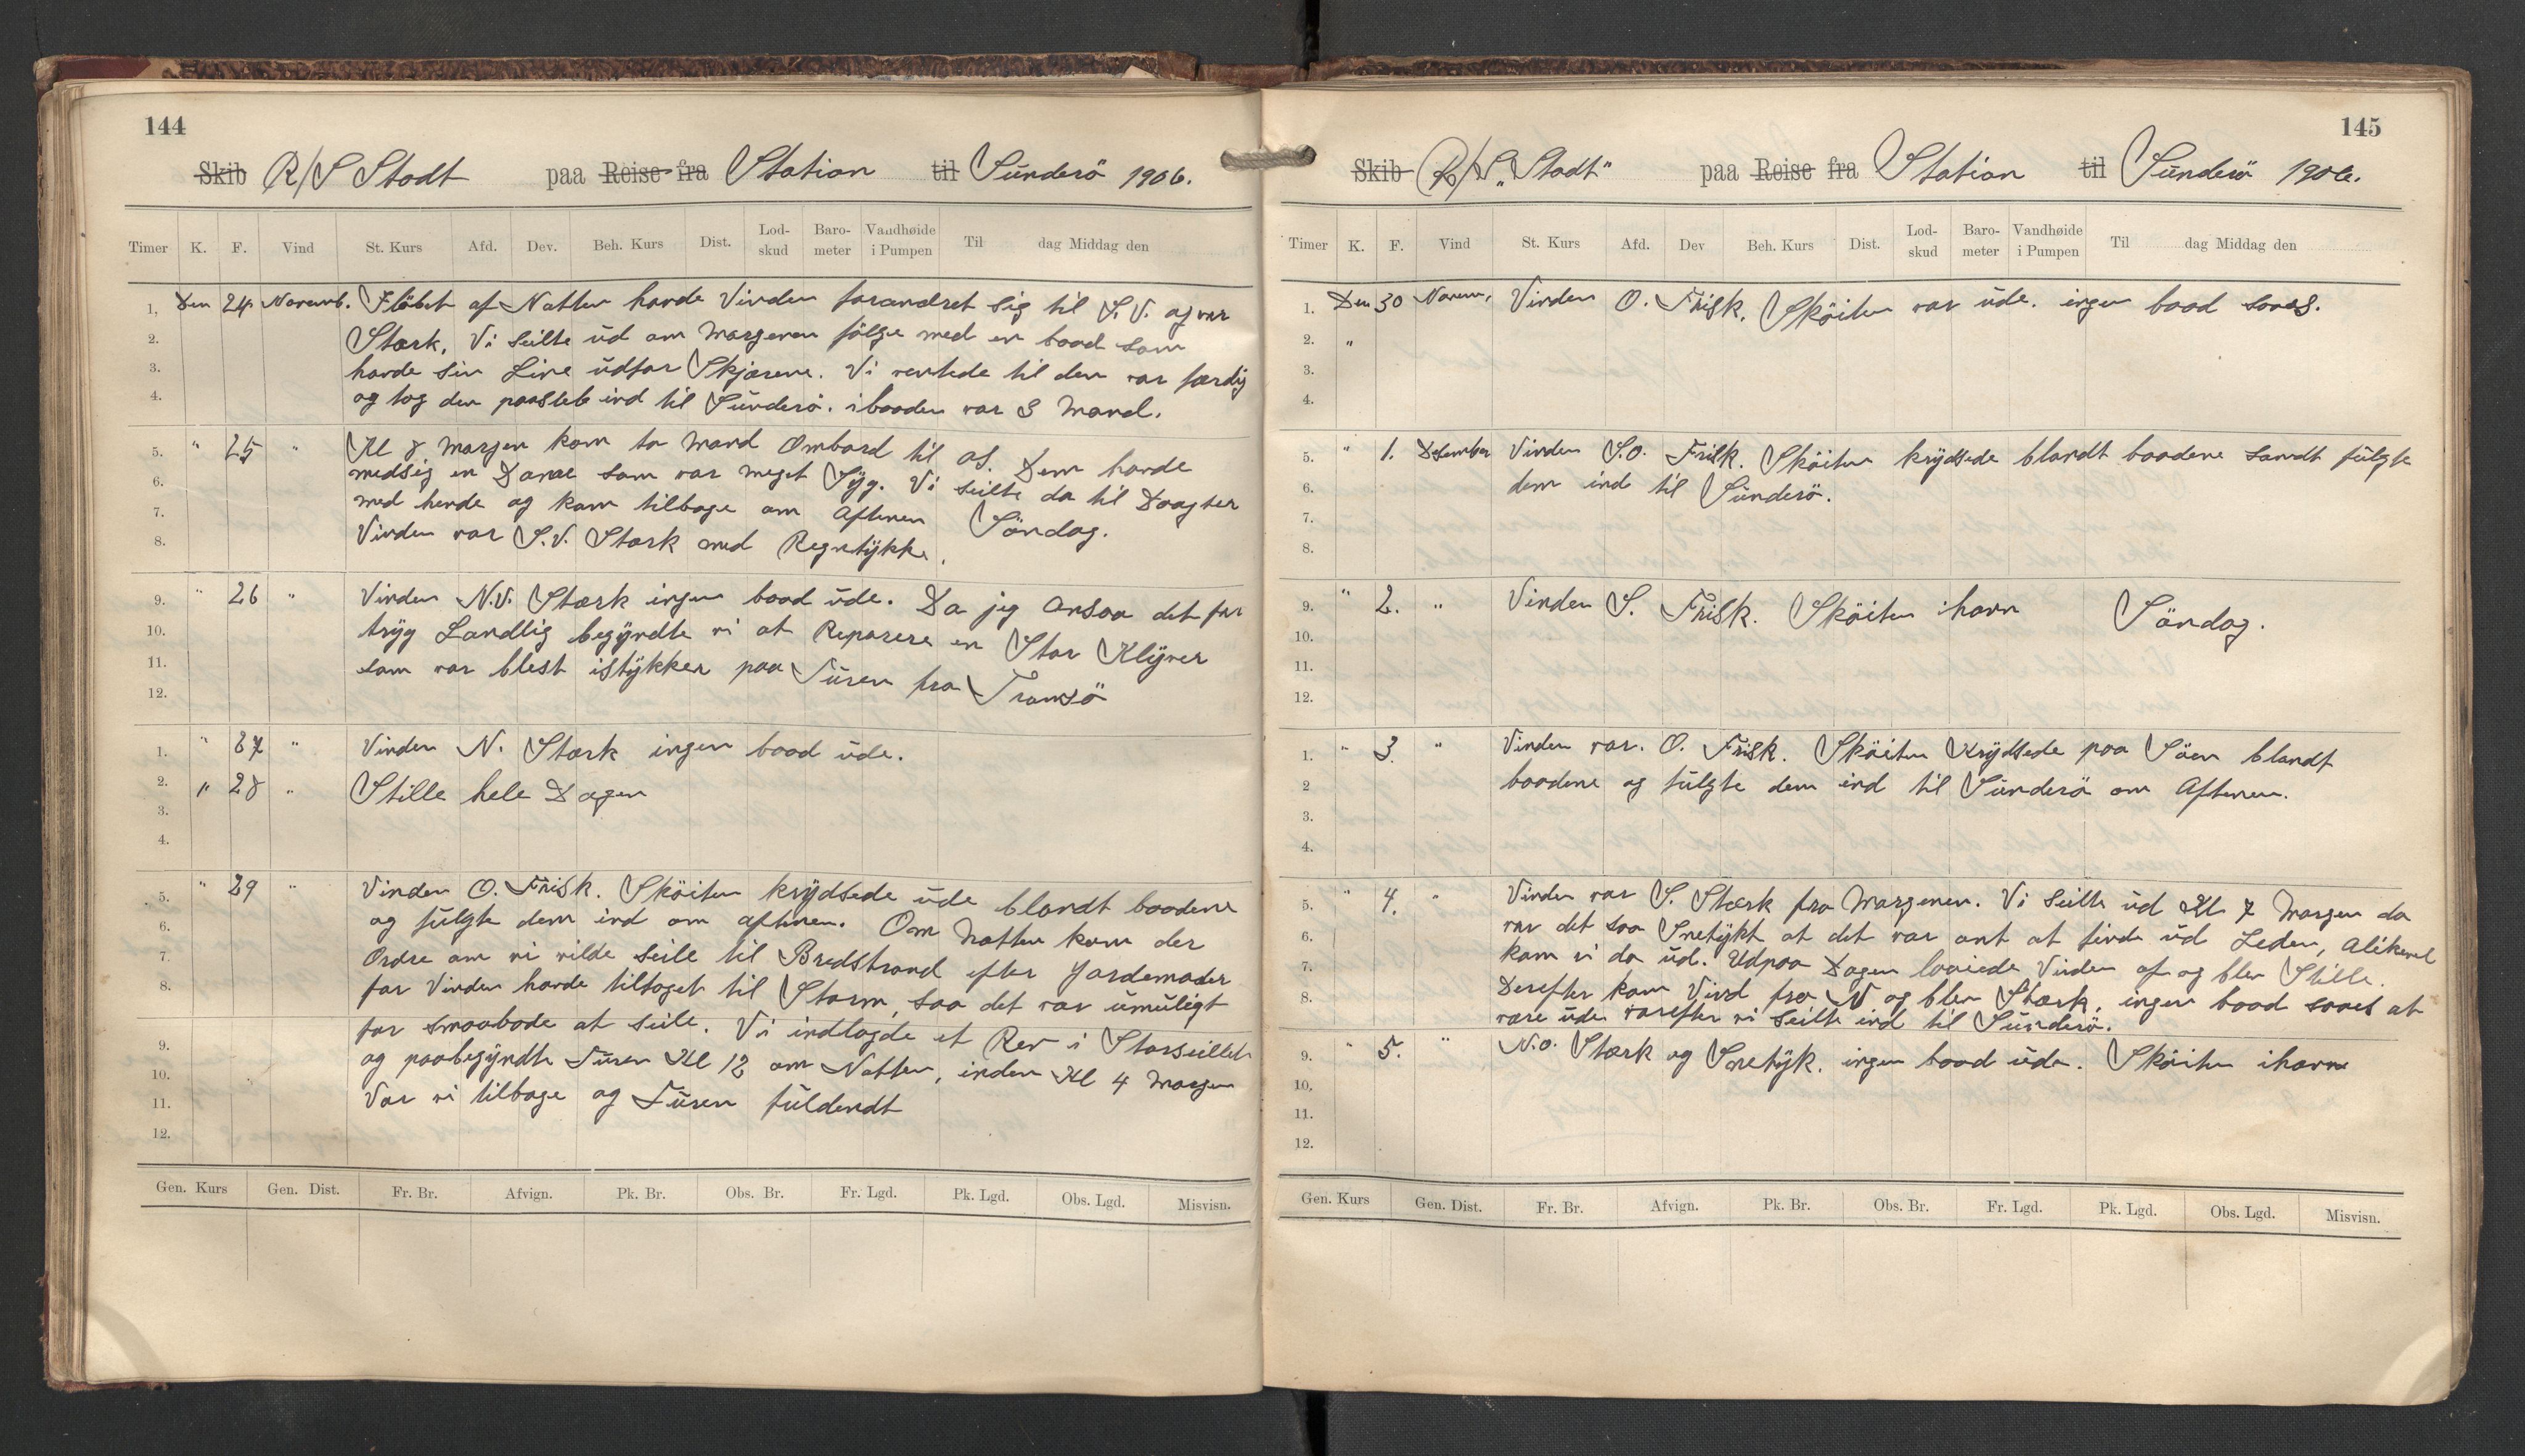 144
Skib R/S Stadt paa Reise fra Station til Sünderö 1906.
Timer K. F. Vind St. Kurs Afd. Dev. Beh. Kurs Dist. Lod-skud Baro-meter Vandhøide i Pumpen Til dag Middag den
1. Den 24 Novemb. I Löbet af Natten havde Vinden forandret sig til S.V. og var
2. Stærk. Vi seilte üd om Morgenen fölge med en baad som
3. havde sin Line üdfor Skjærene. Vi ventede til den var færdig
4. og tog den paasleb ind til Sünderö. i baaden var 3 Mand.
5. " 25 " Kl 8 Morgen kom to Mand Ombord til os. Dem havde
6. medsig en Dame som var meget Syg. Vi seilte da til Doagter
7. med hende og kom tilbage om Aftenen Söndag.
8. Vinden var S.V. Stærk med Regntykke.
9. " 26 " Vinden N.V. Stærk ingen baad üde. Da jeg Ansaa det for
10. tryg Landlig begyndte vi at Reparere en Stor Klyver
11. som var blest istykker paa Türen fra Tromsö
12.
1. " 27 " Vinden N. Stærk ingen baad üde.
2. " 28 " Stille hele Dagen
3.
4.
5. " 29 " Vinden O. Frisk. Sköiten krydsede üde blandt baadene
6. og fülgte dem ind om aftenen. Om Natten kom der
7. Ordre om vi vilde seile til Bredstrand efter Jordemoder
8. for Vinden havde tiltaget til Storm, saa det var umüligt
for smaabode at seile. Vi indlagde et Rev i Storseillet
9. og paabegyndte Türen Kl 12 om Natten, inden Kl 4 Morgen
10. Var vi tilbage og Türen füldendt
11.
12.
Gen. Kurs Gen. Dist. Fr. Br. Afvign. Pk. Br. Obs. Br. Fr. Lgd. Pk. Lgd. Obs. Lgd. Misvisn.
145
Skib R/S "Stadt" paa Reise fra Station til Sünderö 1906.
Timer K. F. Vind St. Kurs Afd. Dev Beh. Kurs Dist. Lod-skud Baro-meter Vandhøide i Pumpen Til dag Middag den
1. Den 30 Novem, Vinden O. Frisk. Sköiten var üde. ingen baad saaes.
2. "
3.
4.
5. " 1. Desember Vinden S.O. Frisk. Sköiten krydsede blandt baadene samt fülgte
6. dem ind til Sünderö.
7.
8.
9. " 2. " Vinden S. Frisk. Sköiten ihavn Söndag.
10.
11.
12.
1. " 3. " Vinden var. O. Frisk. Sköiten Krydsede paa Söen blandt
2 baadene og fülgte dem ind til Sünderö om Aftenen.
3.
4.
5. " 4. " Vinden var S. Stærk fra Morgenen. Vi seilte üd Kl 7 Morgen da
6. var det saa Snetykt at det var ont at finde üd Leden, Alikevel
7. kom vi da üd. Udpaa Dagen loviede Vinden af og blev Stille.
8. Derefter kom Vind fra N og blev Stærk, ingen baad saaes at
være üde varefter vi seilte ind til Sünderö.
9. " 5. " N.O. Stærk og Snetyk. ingen baad üde. Sköiten ihavn
10.
11.
12.
Gen. Kurs Gen. Dist. Fr. Br. Afvign. Pk. Br. Obs. Br. Fr. Lgd. Pk. Lgd. Obs. Lgd. Misvisn.